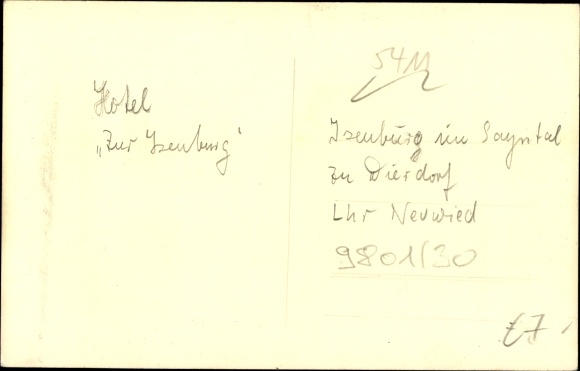 Hotel
„Zur Isenburg"
5411
Isenburg im Sayntal
zu Dierdorf
Lhr Neuwied
9801/30
£7